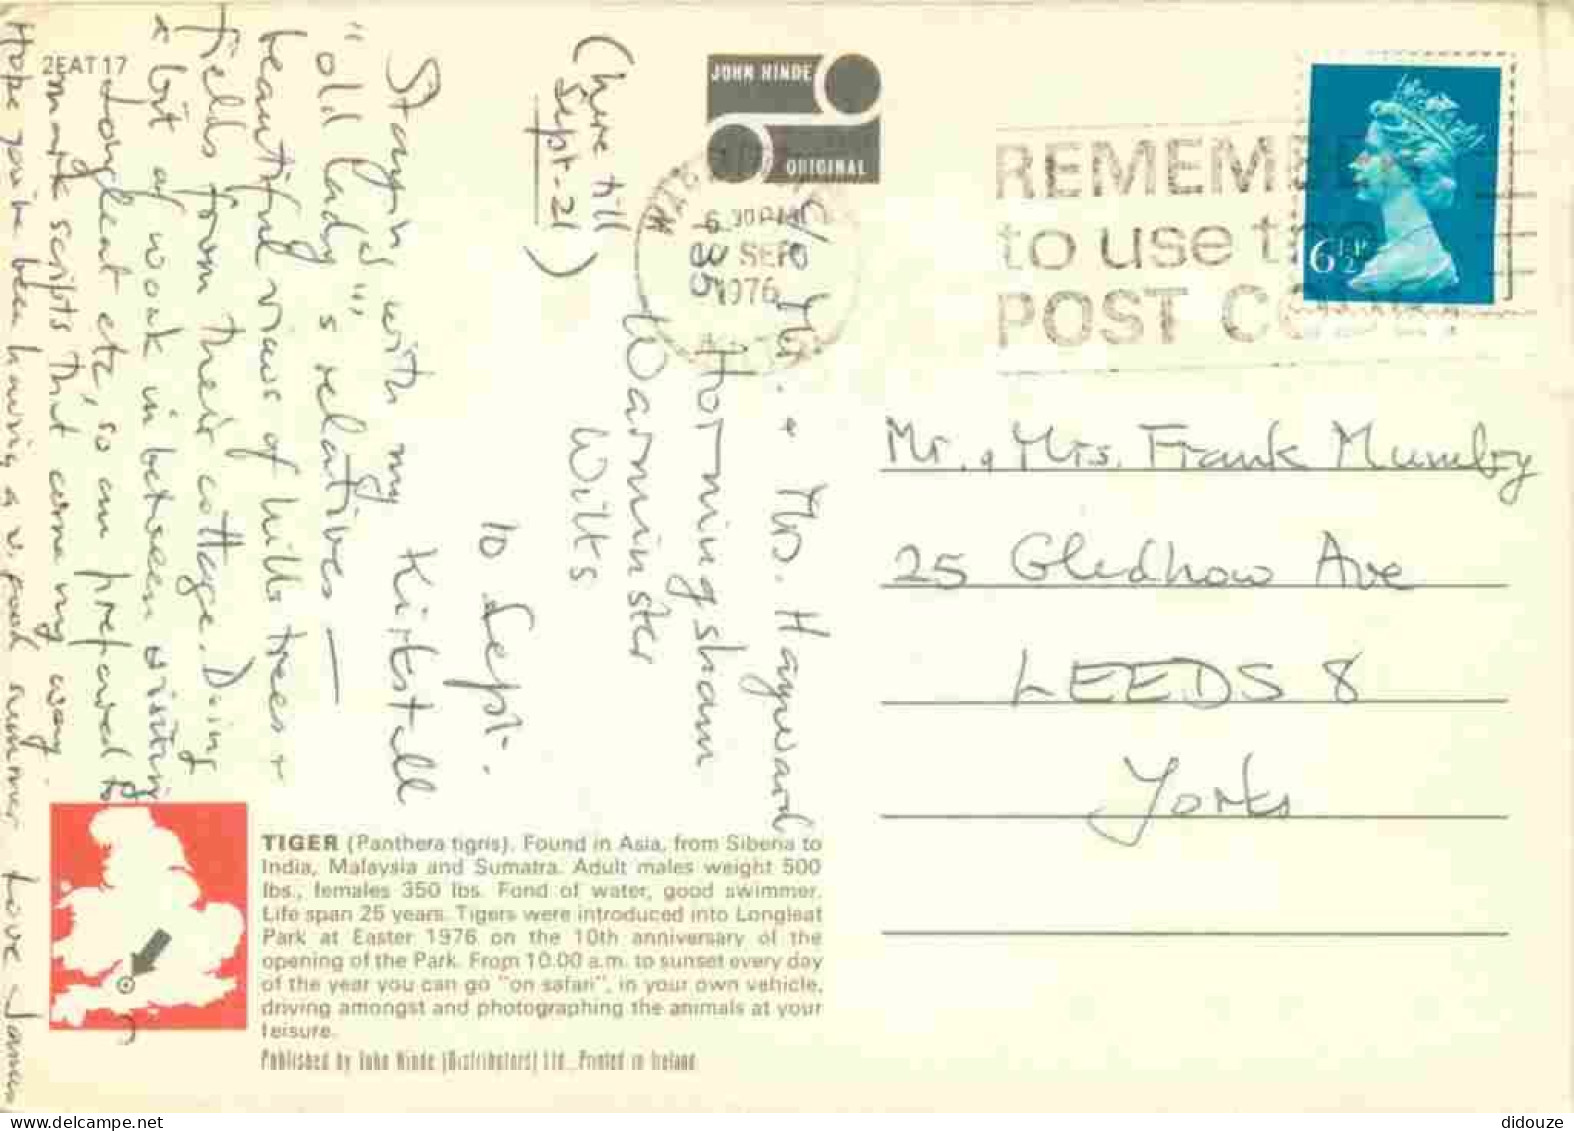 2EAT17
JOHN HINDE
ORIGINAL
6.30PM
SEP
1976
REMEMBER
to use the
POST CODE
6½P
c/o Mr. + Mrs. Hayward
135 Horningsham
Warminster
Wilts
(here till
Sept. 21)
10 Sept.
Staying with my Kirkstall
"old lady's" relatives —
beautiful views of hills trees +
fields from their cottage. Doing
a bit of work in between visiting
Longleat etc, so am prepared to
mark scripts that come my way.
Hope you've been having a v. good summer. Love James
Mr. + Mrs. Frank Mumby
25 Gledhow Ave
LEEDS 8
Yorks
TIGER (Panthera tigris). Found in Asia, from Siberia to
India, Malaysia and Sumatra. Adult males weight 500
lbs., females 350 lbs. Fond of water, good swimmer.
Life span 25 years. Tigers were introduced into Longleat
Park at Easter 1976 on the 10th anniversary of the
opening of the Park. From 10.00 a.m. to sunset every day
of the year you can go "on safari", in your own vehicle,
driving amongst and photographing the animals at your
leisure.
Published by John Hinde (Distributors) Ltd., Printed in Ireland
didouze